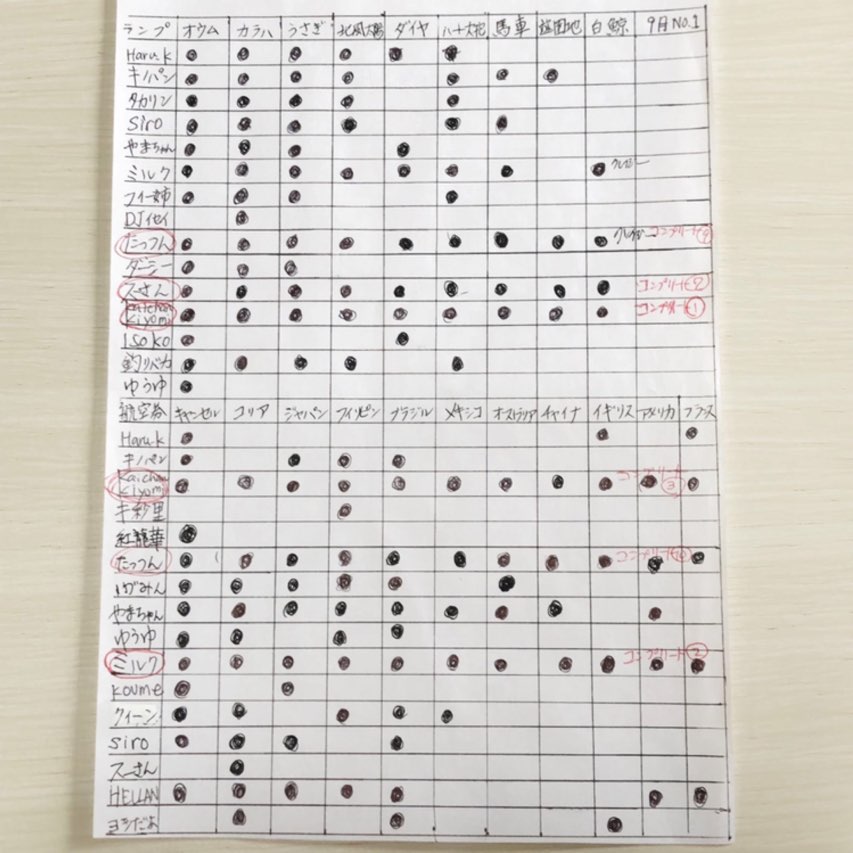 ランプ オウム カラハ うさぎ 北風太陽 ダイヤ 八十大花 馬車 遊園地 白鯨 9月NO.1
Haru.k
キノパン
タカリン
Siro
やまちゃん
ミルク
フィー姉
DJイセイ
たっつん コンプリート
ダーシー
スーさん コンプリート②
kaichan コンプリート①
kiyomi
ISOKO
釣りバカ
ゆうゆ
航空券 キャンセル コリア ジャパン フィリピン ブラジル メキシコ オーストラリア チャイナ イギリス アメリカ フランス
Haru.k
キノパン
Kaichan コンプリート③
kiyomi
キ紗里
紅龍華
たっつん コンプリート
やまちゃん
ゆうゆ
ミルク コンプリート②
koume
クィーン
siro
スーさん
HELLAN